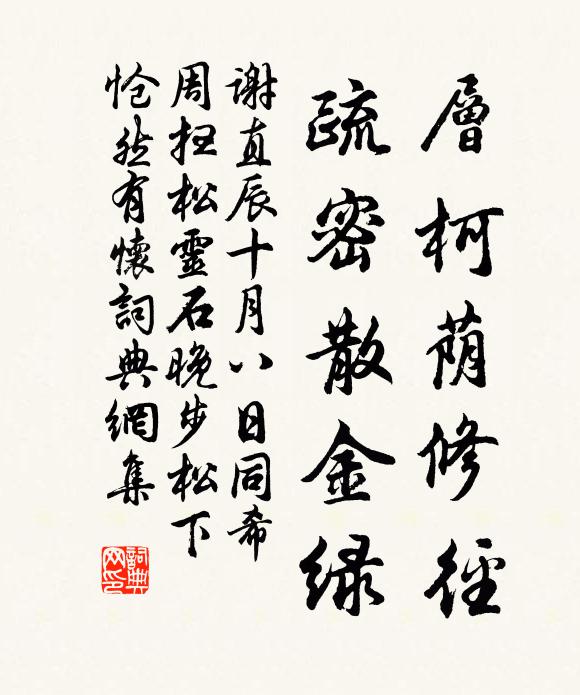 層柯荫修徑
疏密散金緑
謝直辰十月八日同希
周扭松靈石晚步松下
怆然有懷詞典網集
詞典网印